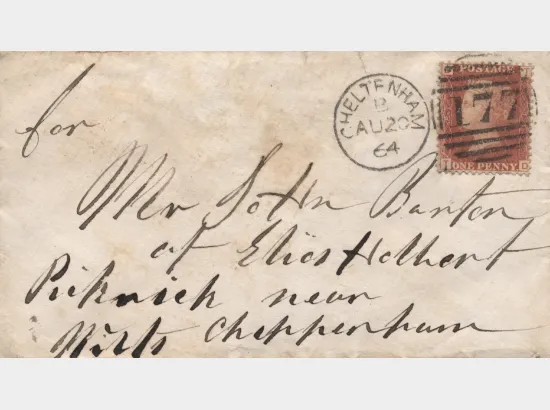 CHELTENHAM
B
AU 20
64
POSTAGE
177
ONE PENNY
for
Mr John Barton
at
Pickwick near
Wilts Chippenham